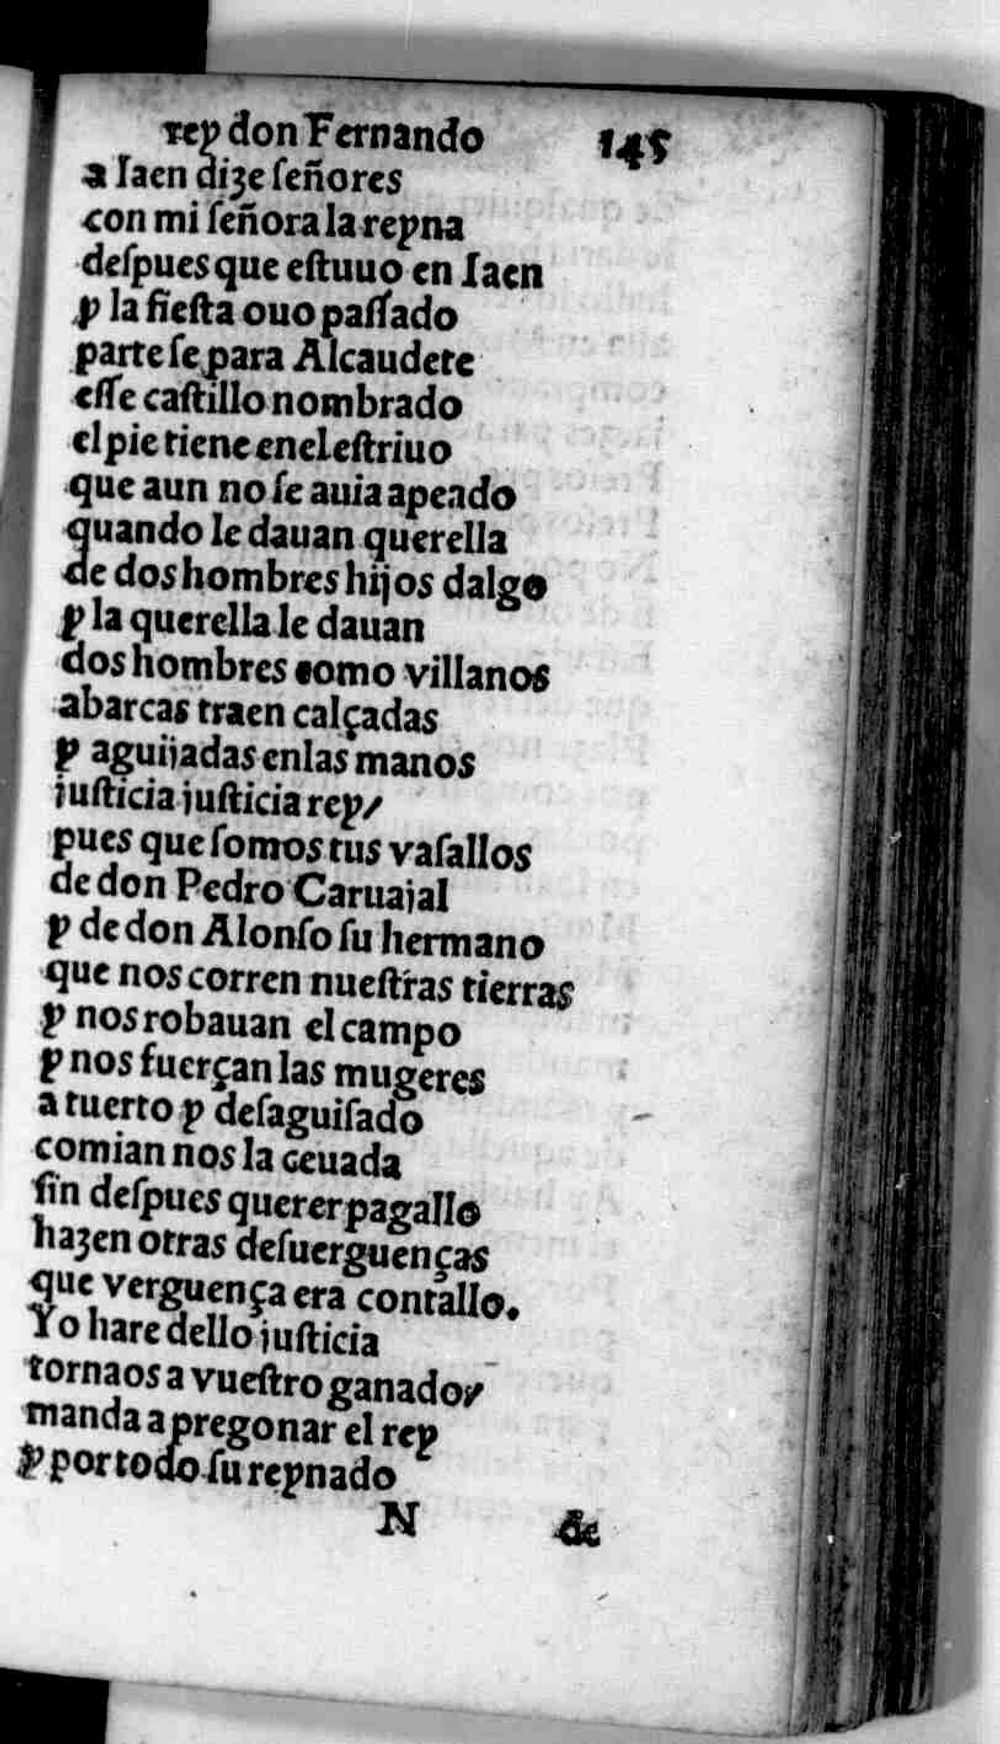 rey don Fernando 145
a Iaen dize ſeñores
con mi ſeñora la reyna
deſpues que eſtuuo en Iaen
y la fieſta ouo paſſado
parte ſe para Alcaudete
eſſe caſtillo nombrado
el pie tiene enel eſtriuo
que aun no ſe auia apeado
quando le dauan querella
de dos hombres hijos dalgo
y la querella le dauan
dos hombres como villanos
abarcas traen calçadas
y aguijadas enlas manos
juſticia juſticia rey/
pues que ſomos tus vaſallos
de don Pedro Caruajal
y de don Alonſo ſu hermano
que nos corren nueſtras tierras
y nos robauan el campo
y nos fuerçan las mugeres
a tuerto y deſaguiſado
comian nos la ceuada
ſin deſpues querer pagallo
hazen otras deſuerguenças
que verguença era contallo.
Yo hare dello juſticia
tornaos a vueſtro ganado/
manda a pregonar el rey
y por todo ſu reynado
N de